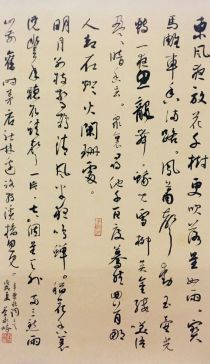 東風夜放花千樹更吹落星如雨寶
馬雕車香滿路鳳簫聲動玉壺光
轉一夜魚龍舞蛾兒雪柳黃金縷笑語
盈盈暗香去眾裏尋他千百度驀然回首那
人却在灯火闌珊處
明月别枝驚鵲清風半夜鳴蟬稻花香裏
說豐年聽取蛙聲一片七八個星天外兩三點雨
山前舊時茅店社林邊路轉溪橋忽見